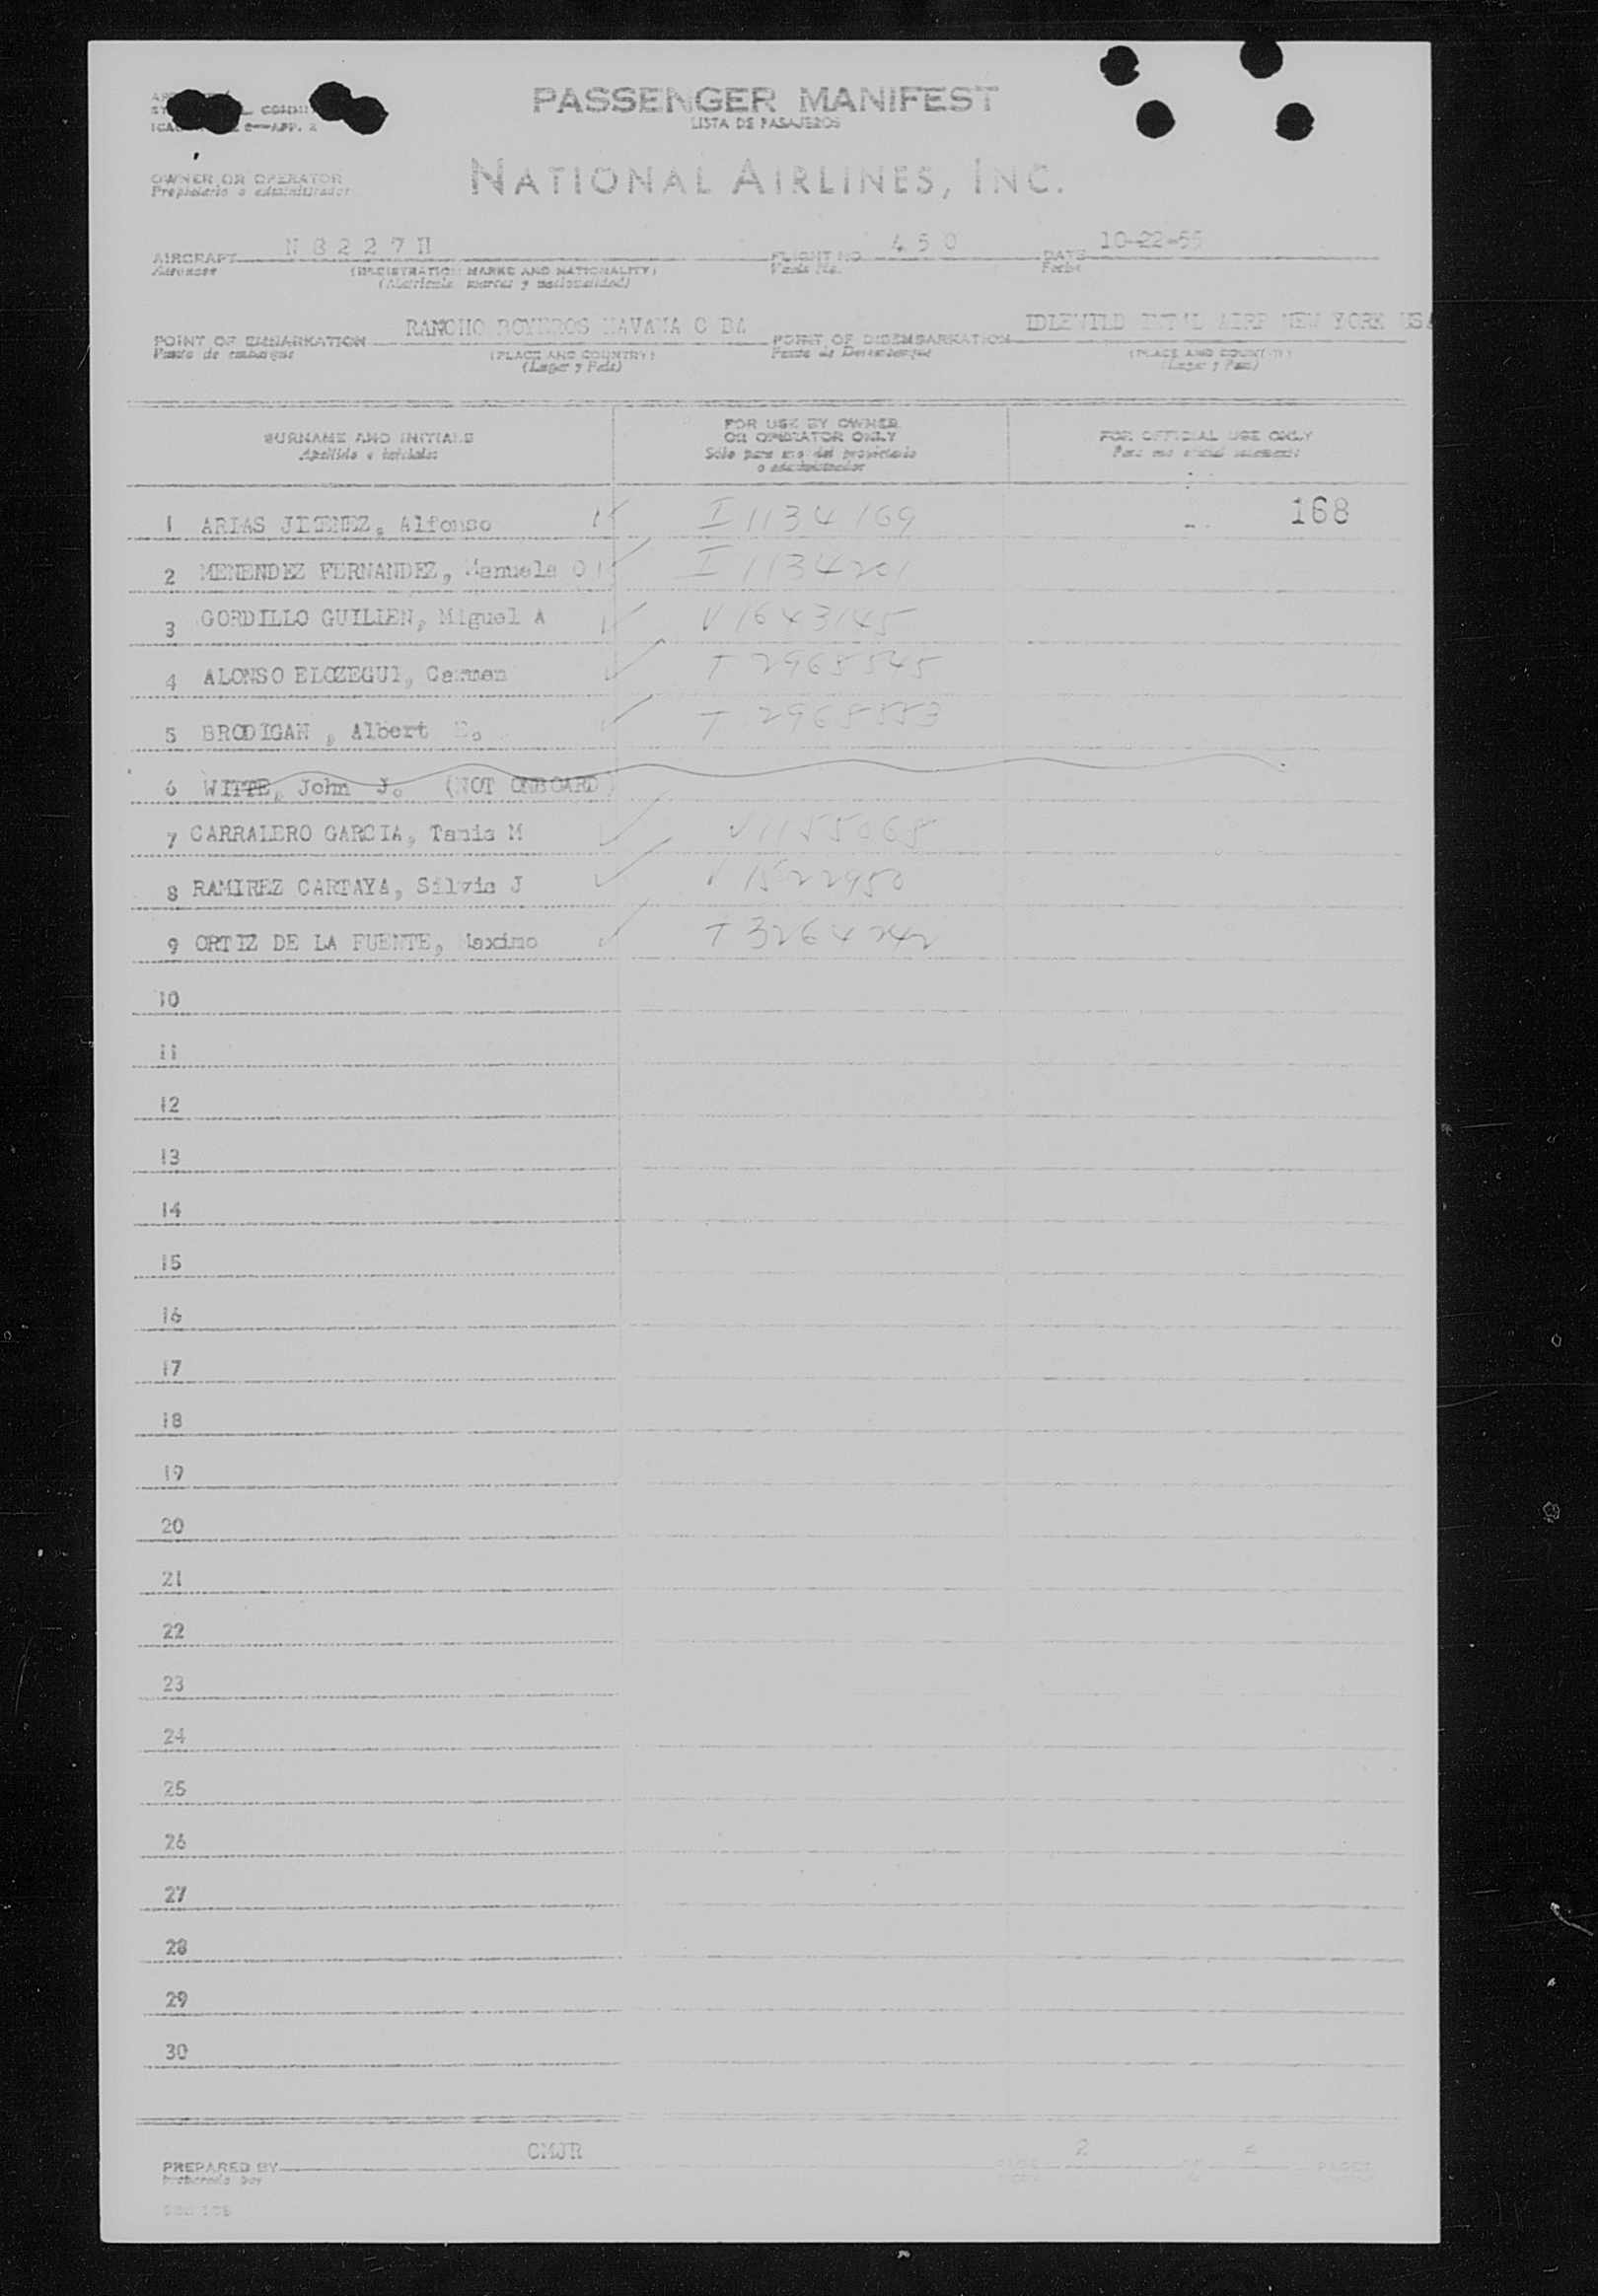 PASSENGER MANIFEST
LISTA DE PASAJEROS
OWNER OR OPERATOR
Propietario o administrador
NATIONAL AIRLINES, INC.
AIRCRAFT N 8 2 2 7 H FLIGHT NO. 4 5 0 DATE 10-22-55
Aeronave (REGISTRATION MARKS AND NATIONALITY) Fecha
(Matricula marcas y nacionalidad)
POINT OF EMBARKATION RANCHO BOYEROS HAVANA C BA POINT OF DISEMBARKATION IDLEWILD INT'L AIRP NEW YORK USA
Punto de embarque (PLACE AND COUNTRY) Punto de Desembarque (PLACE AND COUNTRY)
(Lugar y País) (Lugar y País)
SURNAME AND INITIALS FOR USE BY OWNER OR OPERATOR ONLY FOR OFFICIAL USE ONLY
Apellido e iniciales Sólo para uso del propietario o administrador
1 ARIAS JIMENEZ, Alfonso I 1134169 168
2 MENENDEZ FERNANDEZ, Manuela O I 1134201
3 GORDILLO GUILLEN, Miguel A V 1643145
4 ALONSO ELOZEGUI, Carmen T 2968545
5 BRODIGAN , Albert T 2968553
6 WITTE, John J. (NOT ONBOARD)
7 CARRALERO GARCIA, Tania M V 1155068
8 RAMIREZ CARTAYA, Silvia J V 1522950
9 ORTIZ DE LA FUENTE, Maximo T 3264242
10
11
12
13
14
15
16
17
18
19
20
21
22
23
24
25
26
27
28
29
30
PREPARED BY CMJR 2 PAGES